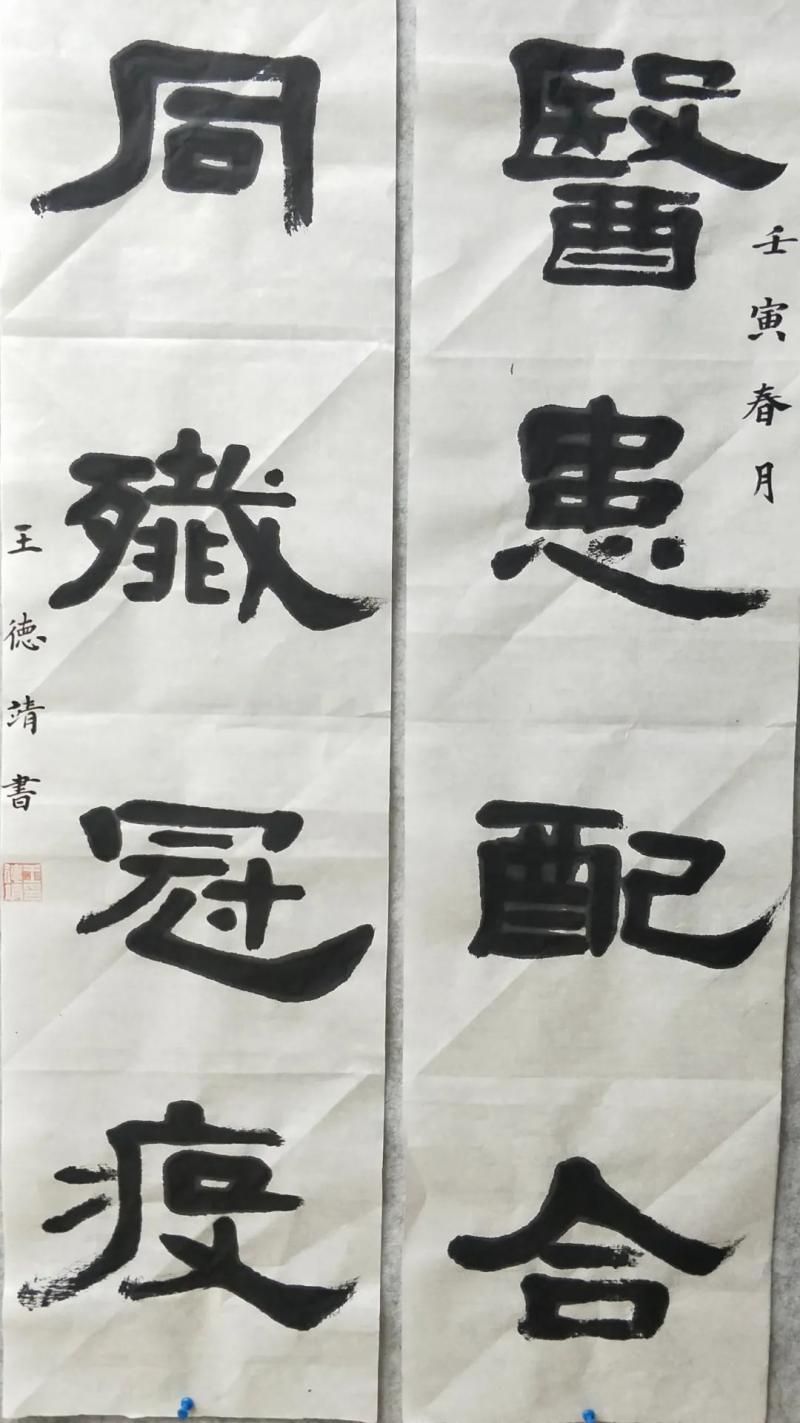 壬寅春月
醫患配合
同殲冠疫
王德靖書